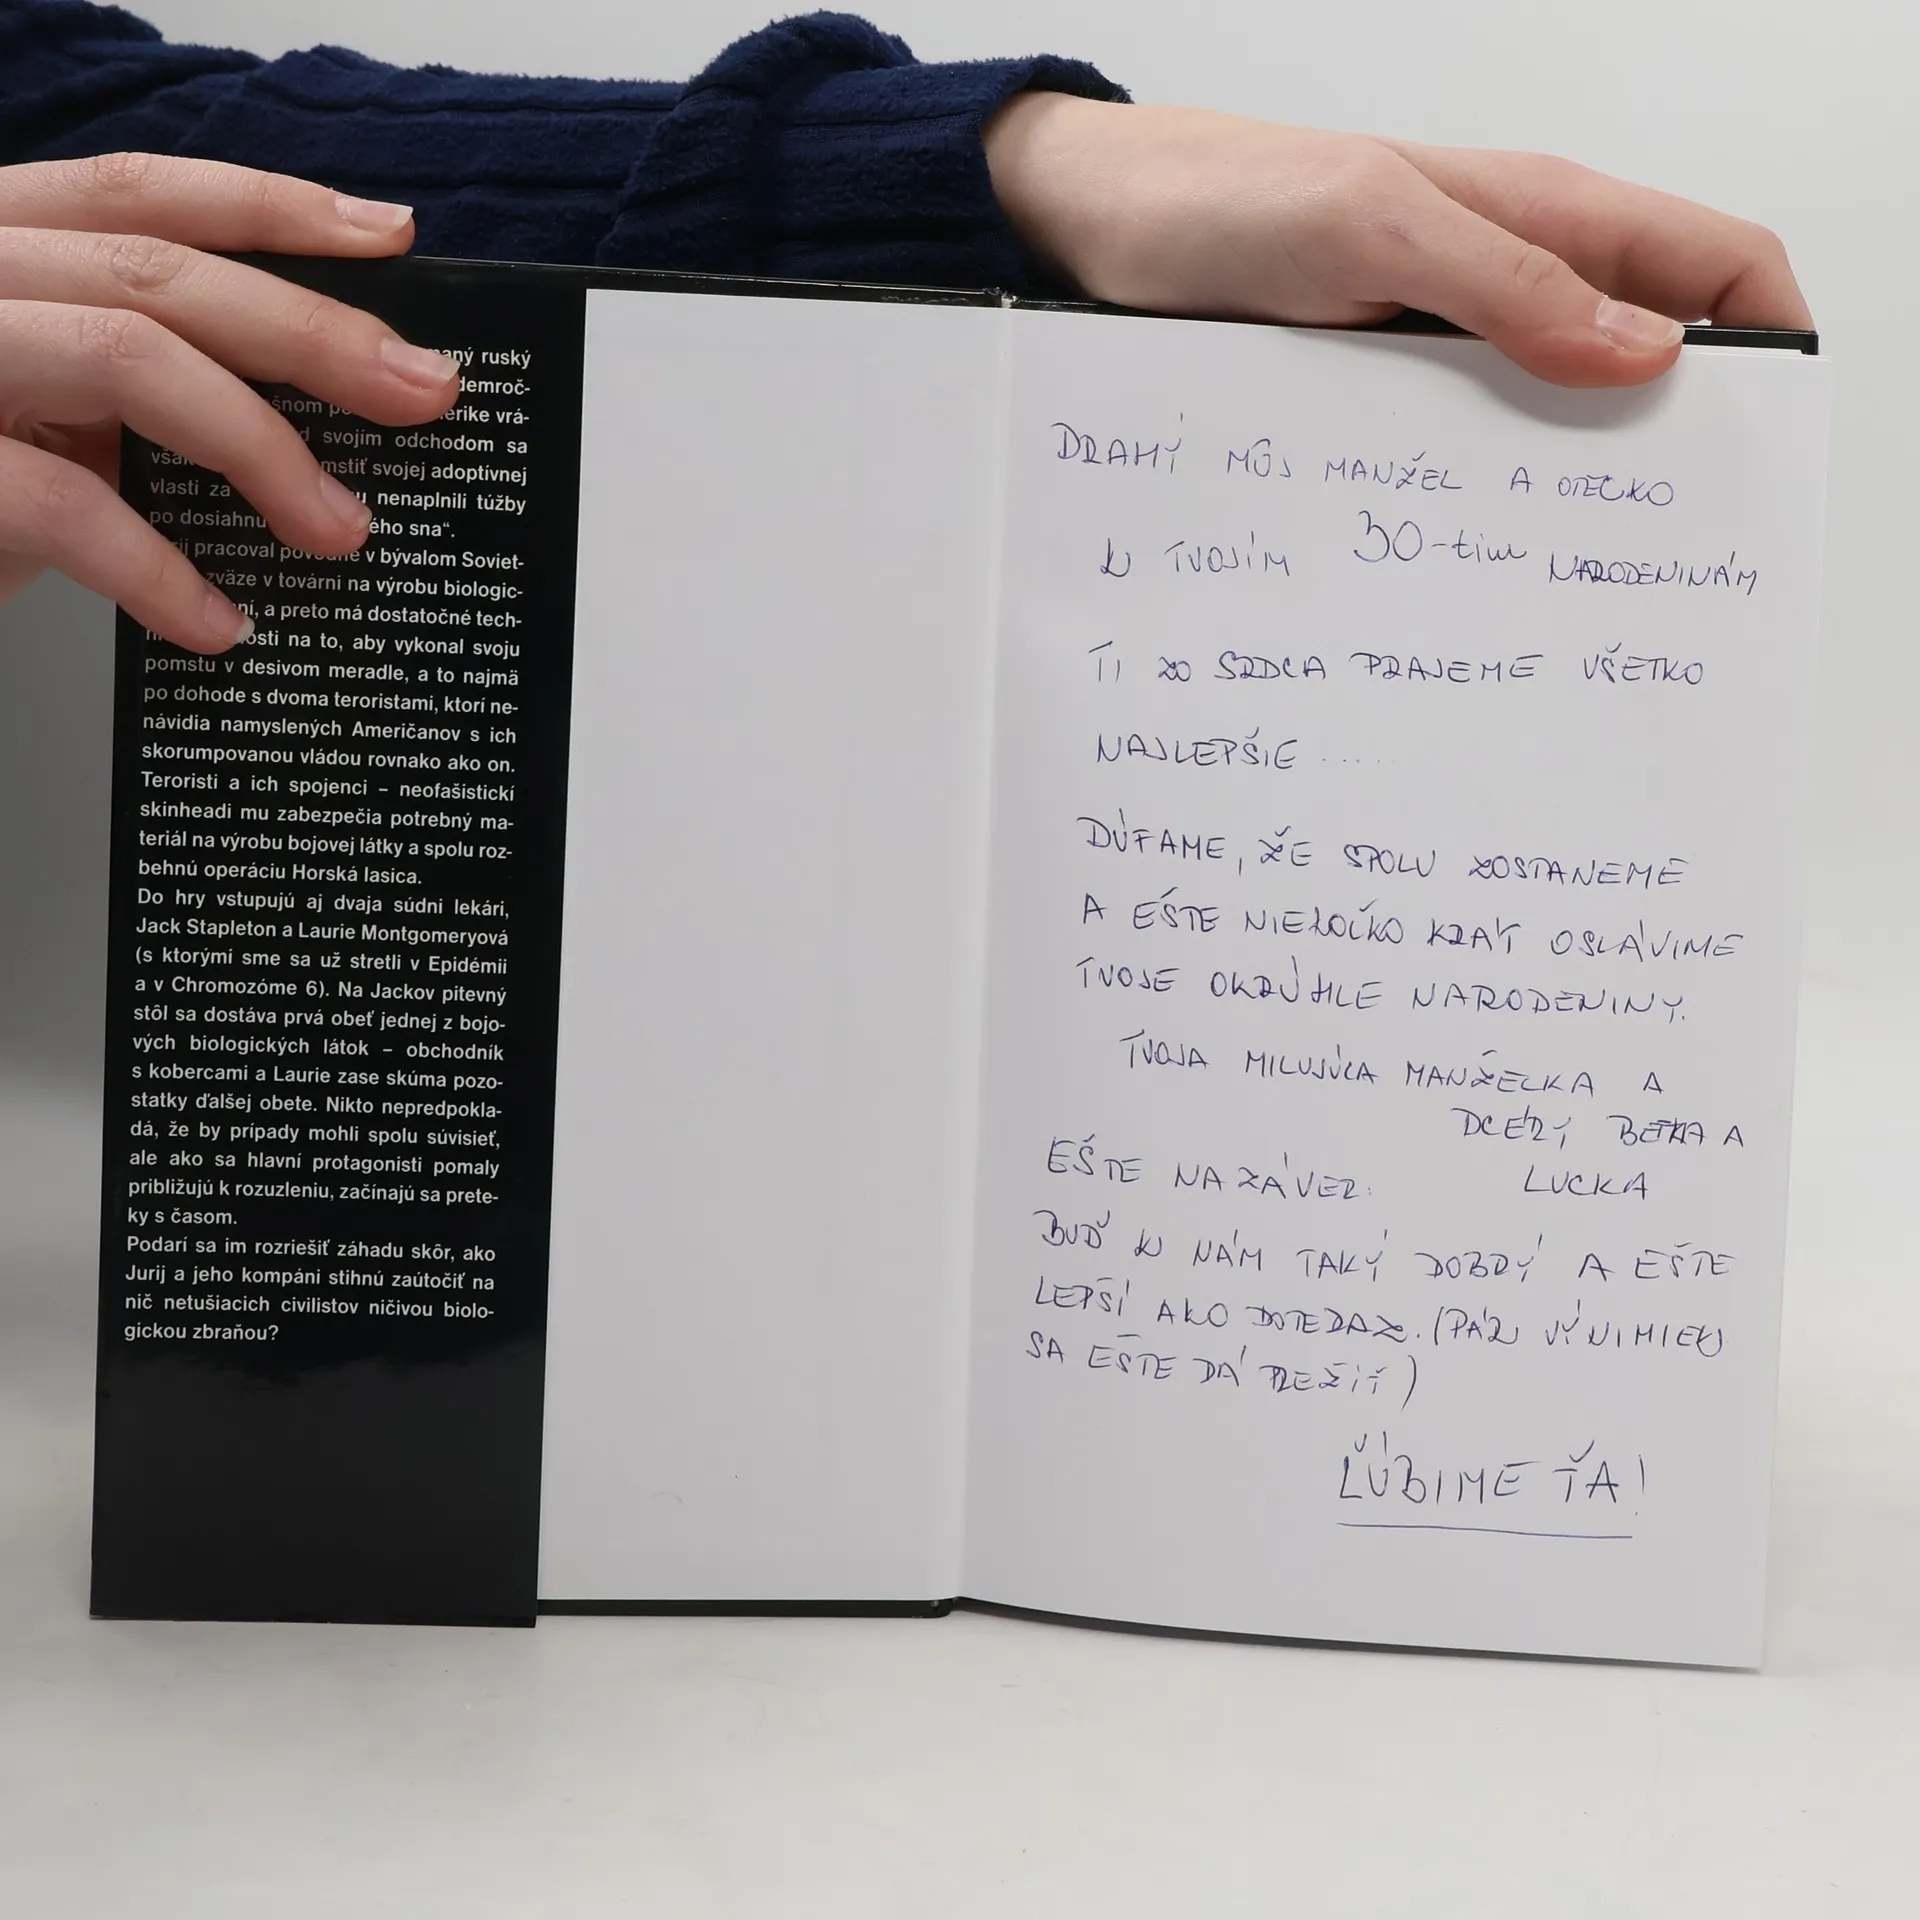 maný ruský
demroč-
erike vrá-
svojim odchodom sa
mstiť svojej adoptívnej
vlasti za nenaplnili túžby
po dosiahnu ého sna“.
pracoval v bývalom Soviet-
zväze v továrni na výrobu biologic-
ní, a preto má dostatočné tech-
osti na to, aby vykonal svoju
pomstu v desivom meradle, a to najmä
po dohode s dvoma teroristami, ktorí ne-
návidia namyslených Američanov s ich
skorumpovanou vládou rovnako ako on.
Teroristi a ich spojenci – neofašistickí
skinheadi mu zabezpečia potrebný ma-
teriál na výrobu bojovej látky a spolu roz-
behnú operáciu Horská lasica.
Do hry vstupujú aj dvaja súdni lekári,
Jack Stapleton a Laurie Montgomeryová
(s ktorými sme sa už stretli v Epidémii
a v Chromozóme 6). Na Jackov pitevný
stôl sa dostáva prvá obeť jednej z bojo-
vých biologických látok – obchodník
s kobercami a Laurie zase skúma pozo-
statky ďalšej obete. Nikto nepredpokla-
dá, že by prípady mohli spolu súvisieť,
ale ako sa hlavní protagonisti pomaly
približujú k rozuzleniu, začínajú sa prete-
ky s časom.
Podarí sa im rozriešiť záhadu skôr, ako
Jurij a jeho kompáni stihnú zaútočiť na
nič netušiacich civilistov ničivou biolo-
gickou zbraňou?
DRAHÝ MÔJ MANŽEL A OTECKO
K TVOJÍM 30-tim NARODENINÁM
TI ZO SRDCA PRAJEME VŠETKO
NAJLEPŠIE .....
DÚFAME, ŽE SPOLU ZOSTANEME
A EŠTE NIEKOĽKO KRÁT OSLÁVIME
TVOJE OKRÚHLE NARODENINY.
TVOJA MILUJÚCA MANŽELKA A
DCÉRY BETKA A
LUCKA
EŠTE NA ZÁVER:
BUĎ K NÁM TAKÝ DOBRÝ A EŠTE
LEPŠÍ AKO DOTERAZ. (PÁR VÝNIMIEK
SA EŠTE DÁ PREŽIŤ)
ĽÚBIME ŤA!